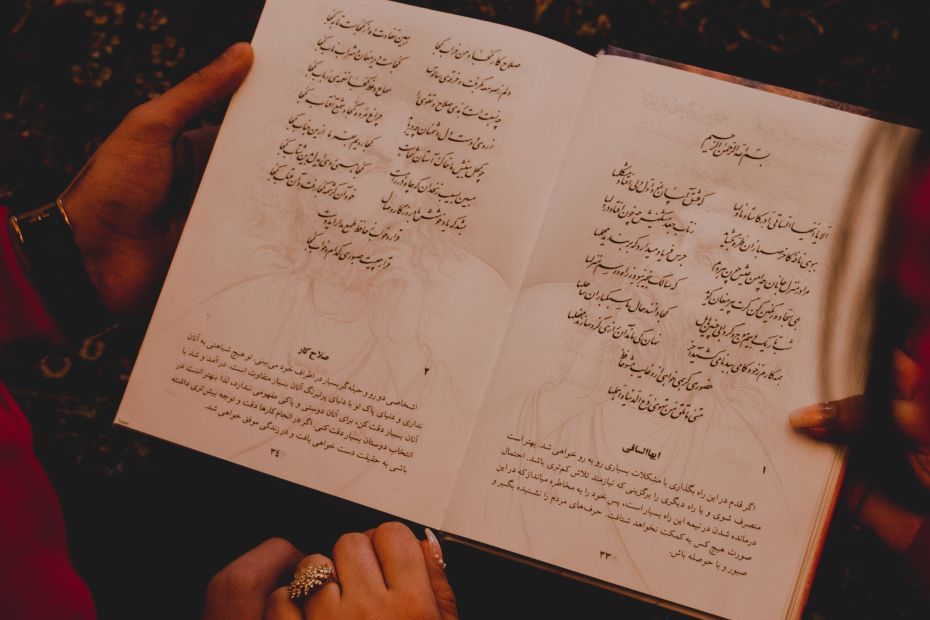 بسم الله الرحمن الرحیم
الا یا ایها الساقی ادر کاسا و ناولها که عشق آسان نمود اول ولی افتاد مشکلها
ببوی نافه کاخر صبا زان طره بگشاید ز تاب جعد مشکینش چه خون افتاد در دلها
مرا در منزل جانان چه امن عیش چون هر دم جرس فریاد میدارد که بربندید محملها
بمی سجاده رنگین کن گرت پیر مغان گوید که سالک بیخبر نبود ز راه و رسم منزلها
شب تاریک و بیم موج و گردابی چنین هایل کجا دانند حال ما سبکباران ساحلها
همه کارم ز خودکامی به بدنامی کشید آخر نهان کی ماند آن رازی کزو سازند محفلها
حضوری گر همی خواهی ازو غایب مشو حافظ
متی ما تلق من تهوی دع الدنیا و اهملها
۱ ایهاالساقی
اگر قدم در این راه بگذاری با مشکلات بسیاری رو به رو خواهی شد. بهتر است
منصرف شوی و یا راه دیگری را برگزینی که نیازمند تلاش کم‌تری باشد. احتمال
درمانده شدن در نیمه این راه بسیار است. پس خود را به مخاطره میانداز که در این
صورت هیچ کس به کمکت نخواهد شتافت. حرف‌های مردم را نشنیده بگیر و
صبور و با حوصله باش.
۳۳
صلاح کار کجا و من خراب کجا ببین تفاوت ره از کجاست تا به کجا
دلم ز صومعه بگرفت و خرقه سالوس کجاست دیر مغان و شراب ناب کجا
چه نسبت است به رندی صلاح و تقوی را سماع وعظ کجا نغمه رباب کجا
ز روی دوست دل دشمنان چه دریابد چراغ مرده کجا شمع آفتاب کجا
چو کحل بینش ما خاک آستان شماست کجا رویم بفرما ازین جناب کجا
مبین به سیب زنخدان که چاه در راه است کجا همی روی ای دل بدین شتاب کجا
بشد که یاد خوشش باد روزگار وصال خود آن کرشمه کجا رفت و آن عتاب کجا
قرار و خواب ز حافظ طمع مدار ای دوست
قرار چیست صبوری کدام و خواب کجا
۲ صلاح کار
اشخاصی دو رو و حیله‌گر بسیار در اطراف خود می‌بینی. تو هیچ شباهتی به آنان
نداری و دنیای پاک تو با دنیای پرنیرنگ آنان بسیار متفاوت است. در آمد و شد با
آنان بسیار دقت کن، برای آنان دوستی و پاکی مفهومی ندارد. لذا بهتر است در
انتخاب دوستان بسیار دقت کنی. اگر در انجام کارها دقت و توجه بیش‌تری داشته
باشی به حقیقت دست خواهی یافت و در زندگی موفق خواهی شد.
۳۴